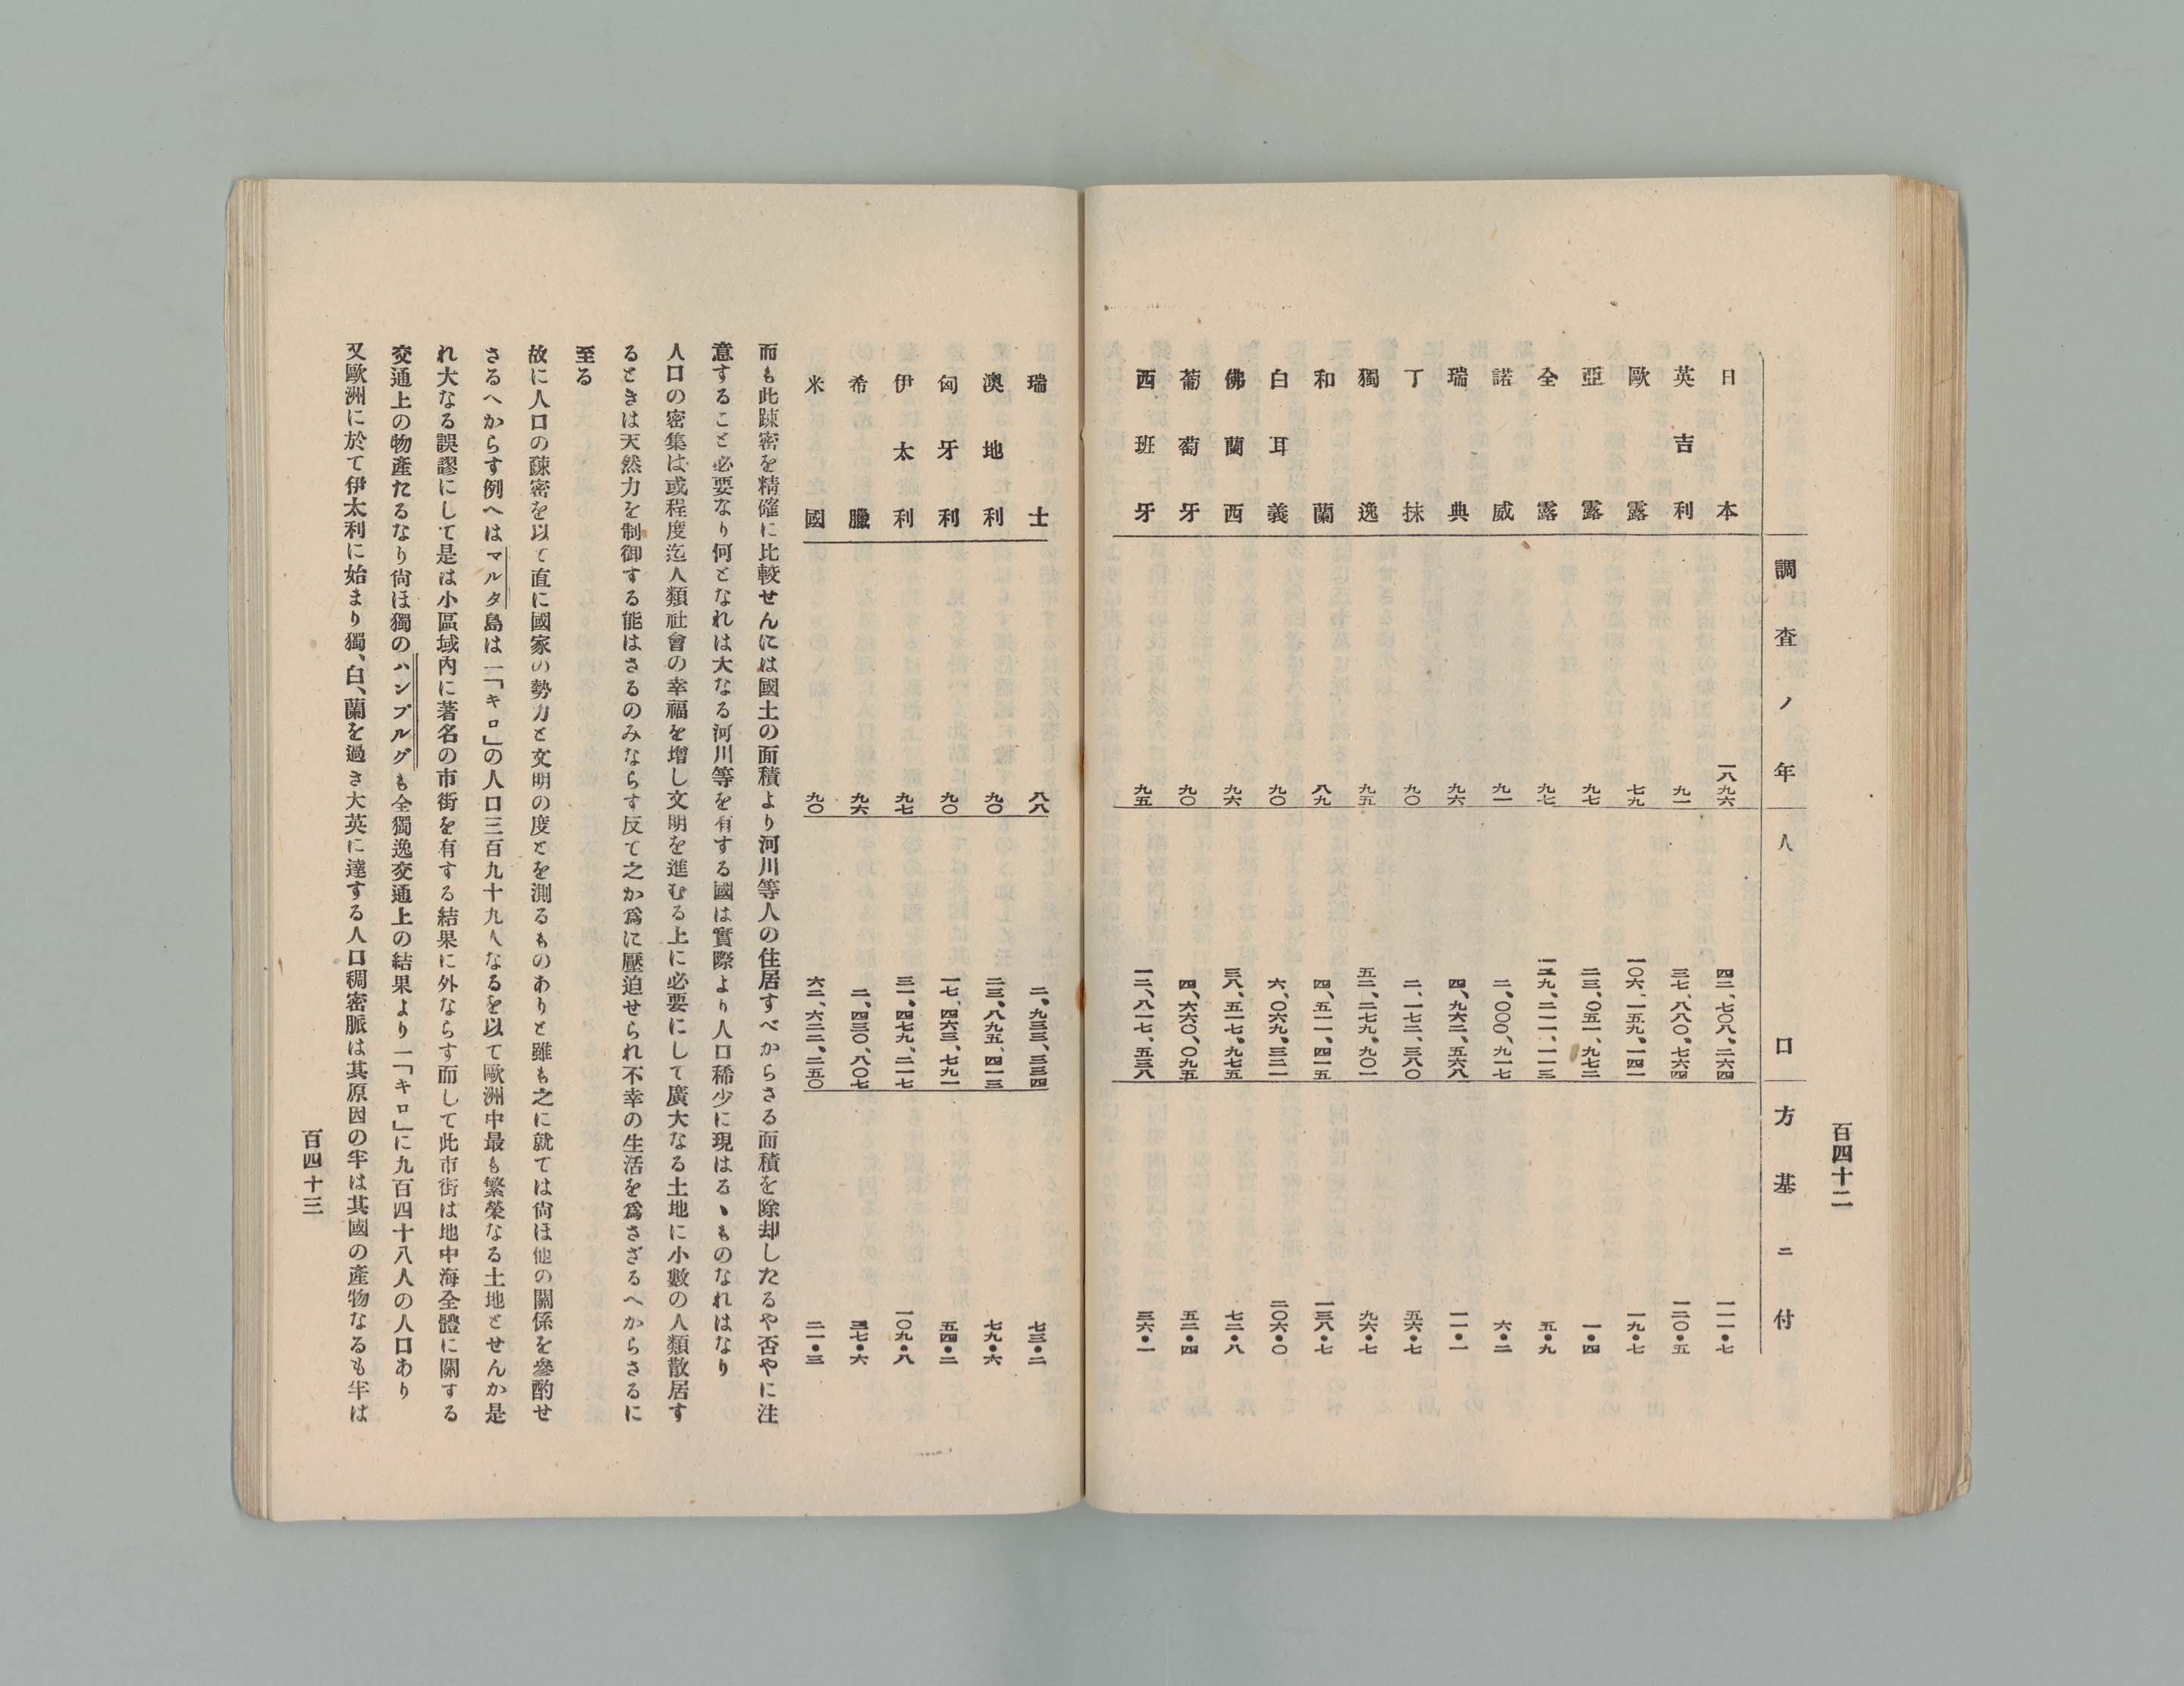 百四十二
調査ノ年 人口 方基ニ付
日本 一八九六 四二、七〇八、二六四 一一一・七
英吉利 九一 三七、八八〇、七六四 一二〇・五
歐露 七九 一〇六、一五九、一四一 一九・七
亞露 九七 二三、〇五一、九七二 一・四
全露 九七 一二九、二一一、一一三 五・九
諾威 九一 二、〇〇〇、九一七 六・二
瑞典 九六 四、九六二、五六八 一一・一
丁抹 九〇 二、一七二、三八〇 五六・七
獨逸 九五 五二、二七九、九〇一 九六・七
和蘭 八九 四、五一一、四一五 一三八・七
白耳義 九〇 六、〇六九、三二一 二〇六・〇
佛蘭西 九六 三八、五一七、九七五 七二・八
葡萄牙 九〇 四、六六〇、〇九五 五二・四
西班牙 九五 一二、八一七、五三八 三六・一
瑞士 八八 二、九三三、三三四 七三・二
澳地利 九〇 二三、八九五、四一三 七九・六
匈牙利 九〇 一七、四六三、七九一 五四・二
伊太利 九七 三一、四七九、二一七 一〇九・八
希臘 九六 二、四三〇、八〇七 三七・六
米國 九〇 六二、六二二、二五〇 二一・三
而も此疎密を精確に比較せんには國土の面積より河川等人の住居すべからさる面積を除却したるや否やに注
意すること必要なり何となれは大なる河川等を有する國は實際より人口稀少に現はるゝものなれはなり
人口の密集は或程度迄人類社會の幸福を增し文明を進むる上に必要にして廣大なる土地に小數の人類散居す
るときは天然力を制御する能はさるのみならす反て之か爲に壓迫せられ不幸の生活を爲さざるへからさるに
至る
故に人口の疎密を以て直に國家の勢力と文明の度とを測るものありと雖も之に就ては尙ほ他の關係を參酌せ
さるへからす例へはマルタ島は一「キロ」の人口三百九十九人なるを以て歐洲中最も繁榮なる土地とせんか是
れ大なる誤謬にして是は小區域內に著名の市街を有する結果に外ならす而して此市街は地中海全體に關する
交通上の物產たるなり尙ほ獨のハンブルグも全獨逸交通上の結果より一「キロ」に九百四十八人の人口あり
又歐洲に於て伊太利に始まり獨、白、蘭を過き大英に達する人口稠密脈は其原因の半は其國の產物なるも半は
百四十三